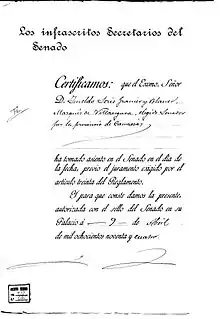 Los infrascritos Secretarios del
Senado
Certificamos: que el Excmo. Señor
D. Imeldo Seris Granier y Blanco,
Marqués de Villasegura, elegido Senador
por la provincia de Canarias
ha tomado asiento en el Senado en el día de
la fecha, previo el juramento exigido por el
artículo treinta del Reglamento.
Y para que conste damos la presente,
autorizada con el sello del Senado en su
Palacio á 9 de Abril
de mil ochocientos noventa y cuatro